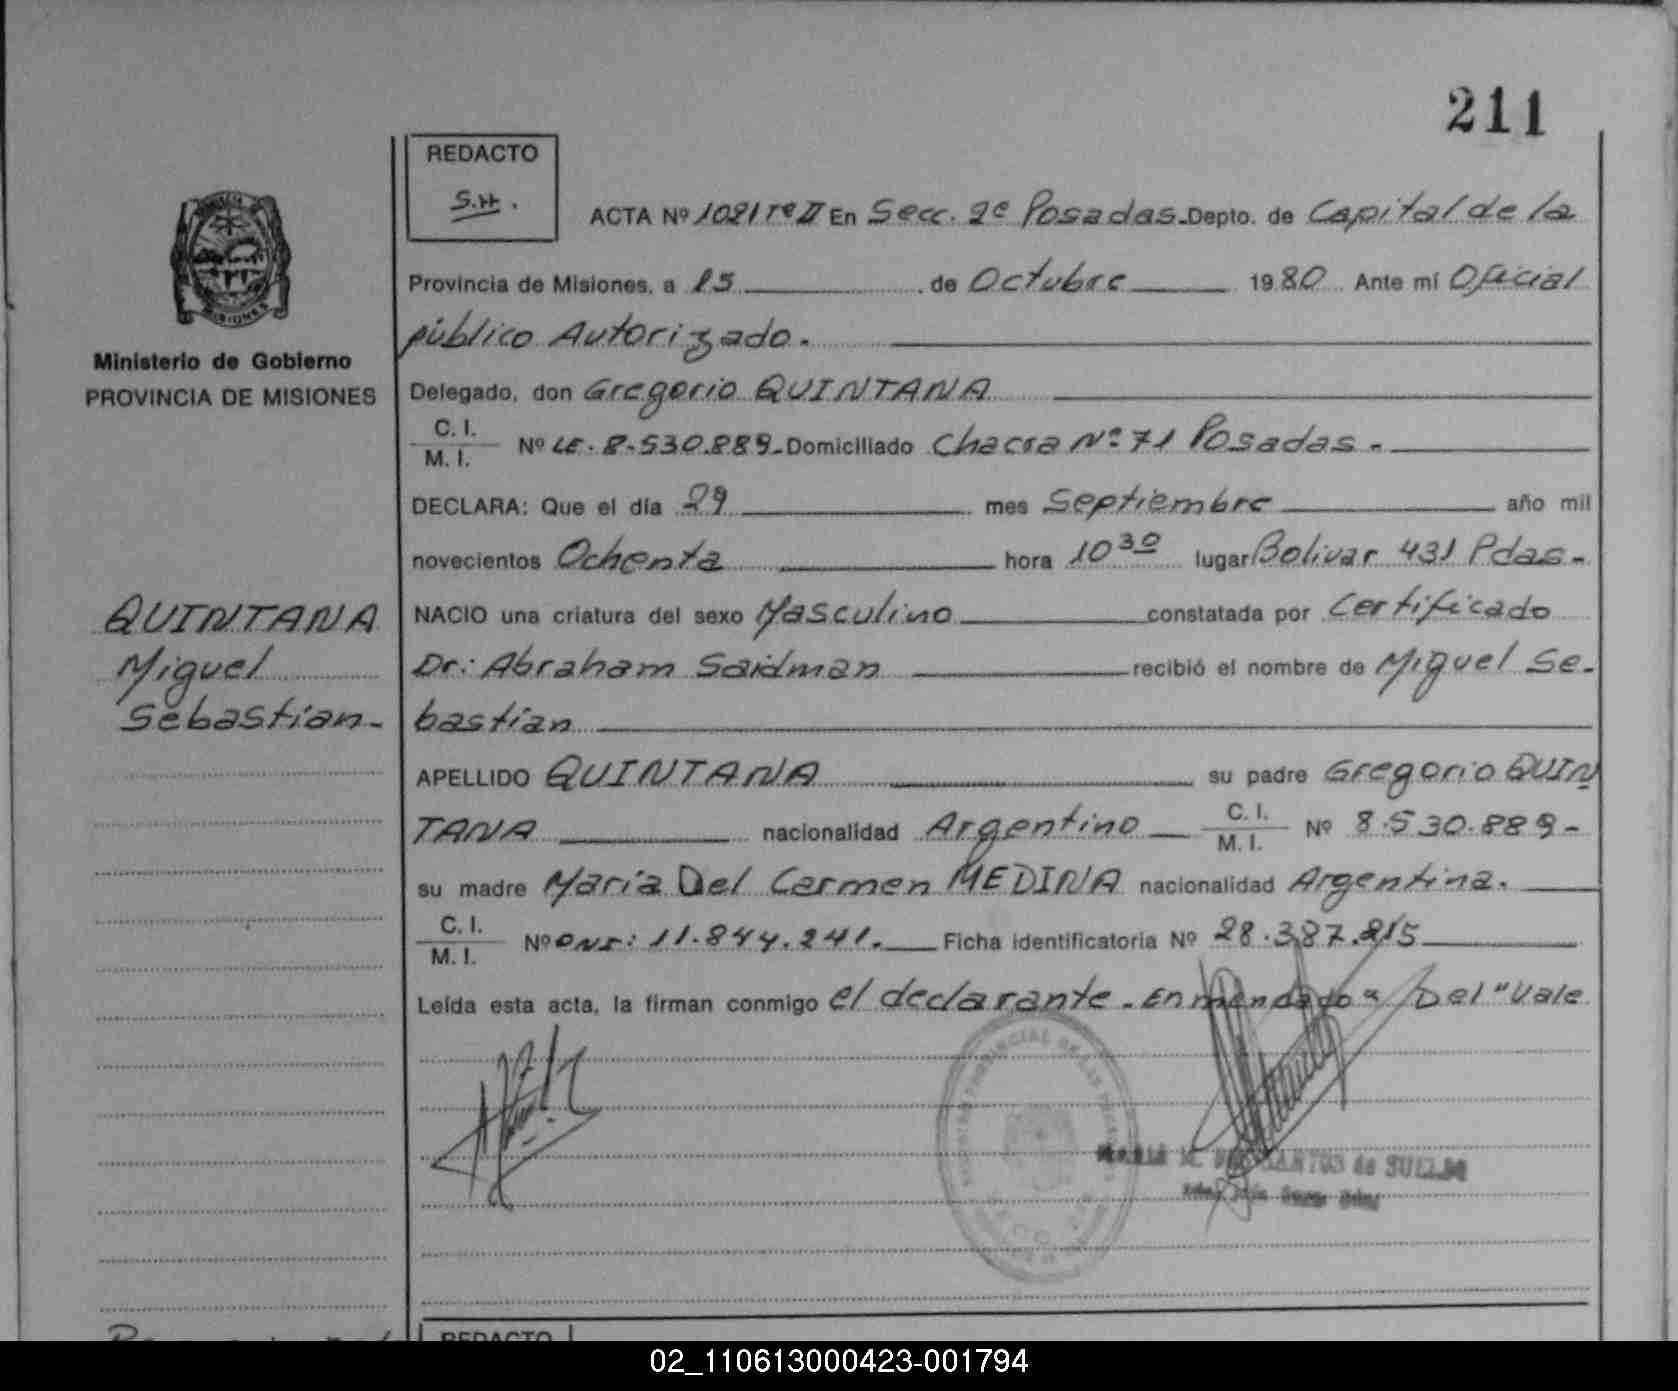 211
REDACTO
S.H.
ACTA Nº 1021 Tº II En Secc. 2º Posadas. Depto. de Capital de la
Provincia de Misiones, a 15 de Octubre 1980 Ante mí Oficial
público Autorizado.
Ministerio de Gobierno
PROVINCIA DE MISIONES
Delegado, don Gregorio QUINTANA
C. I.
M. I.
Nº LE. 8.530.889. Domiciliado Chacra Nº 71 Posadas.-
DECLARA: Que el día 29 mes Septiembre año mil
novecientos Ochenta hora 10 30 lugar Bolivar 431 Pdas-
QUINTANA
Miguel
Sebastian-
NACIO una criatura del sexo Masculino constatada por Certificado
Dr.: Abraham Saidman recibió el nombre de Miguel Se-
bastian
APELLIDO QUINTANA su padre Gregorio QUIN
TANA nacionalidad Argentino C. I.
M. I. Nº 8.530.889-
su madre María Del Carmen MEDINA nacionalidad Argentina.
C. I.
M. I.
Nº DNI: 11.844.241. Ficha identificatoria Nº 28.387.215
Leída esta acta, la firman conmigo el declarante. Enmendado "Del" Vale
M. SANTOS de
REDACTO
02_110613000423-001794